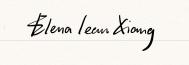 Elena Jean Xiang